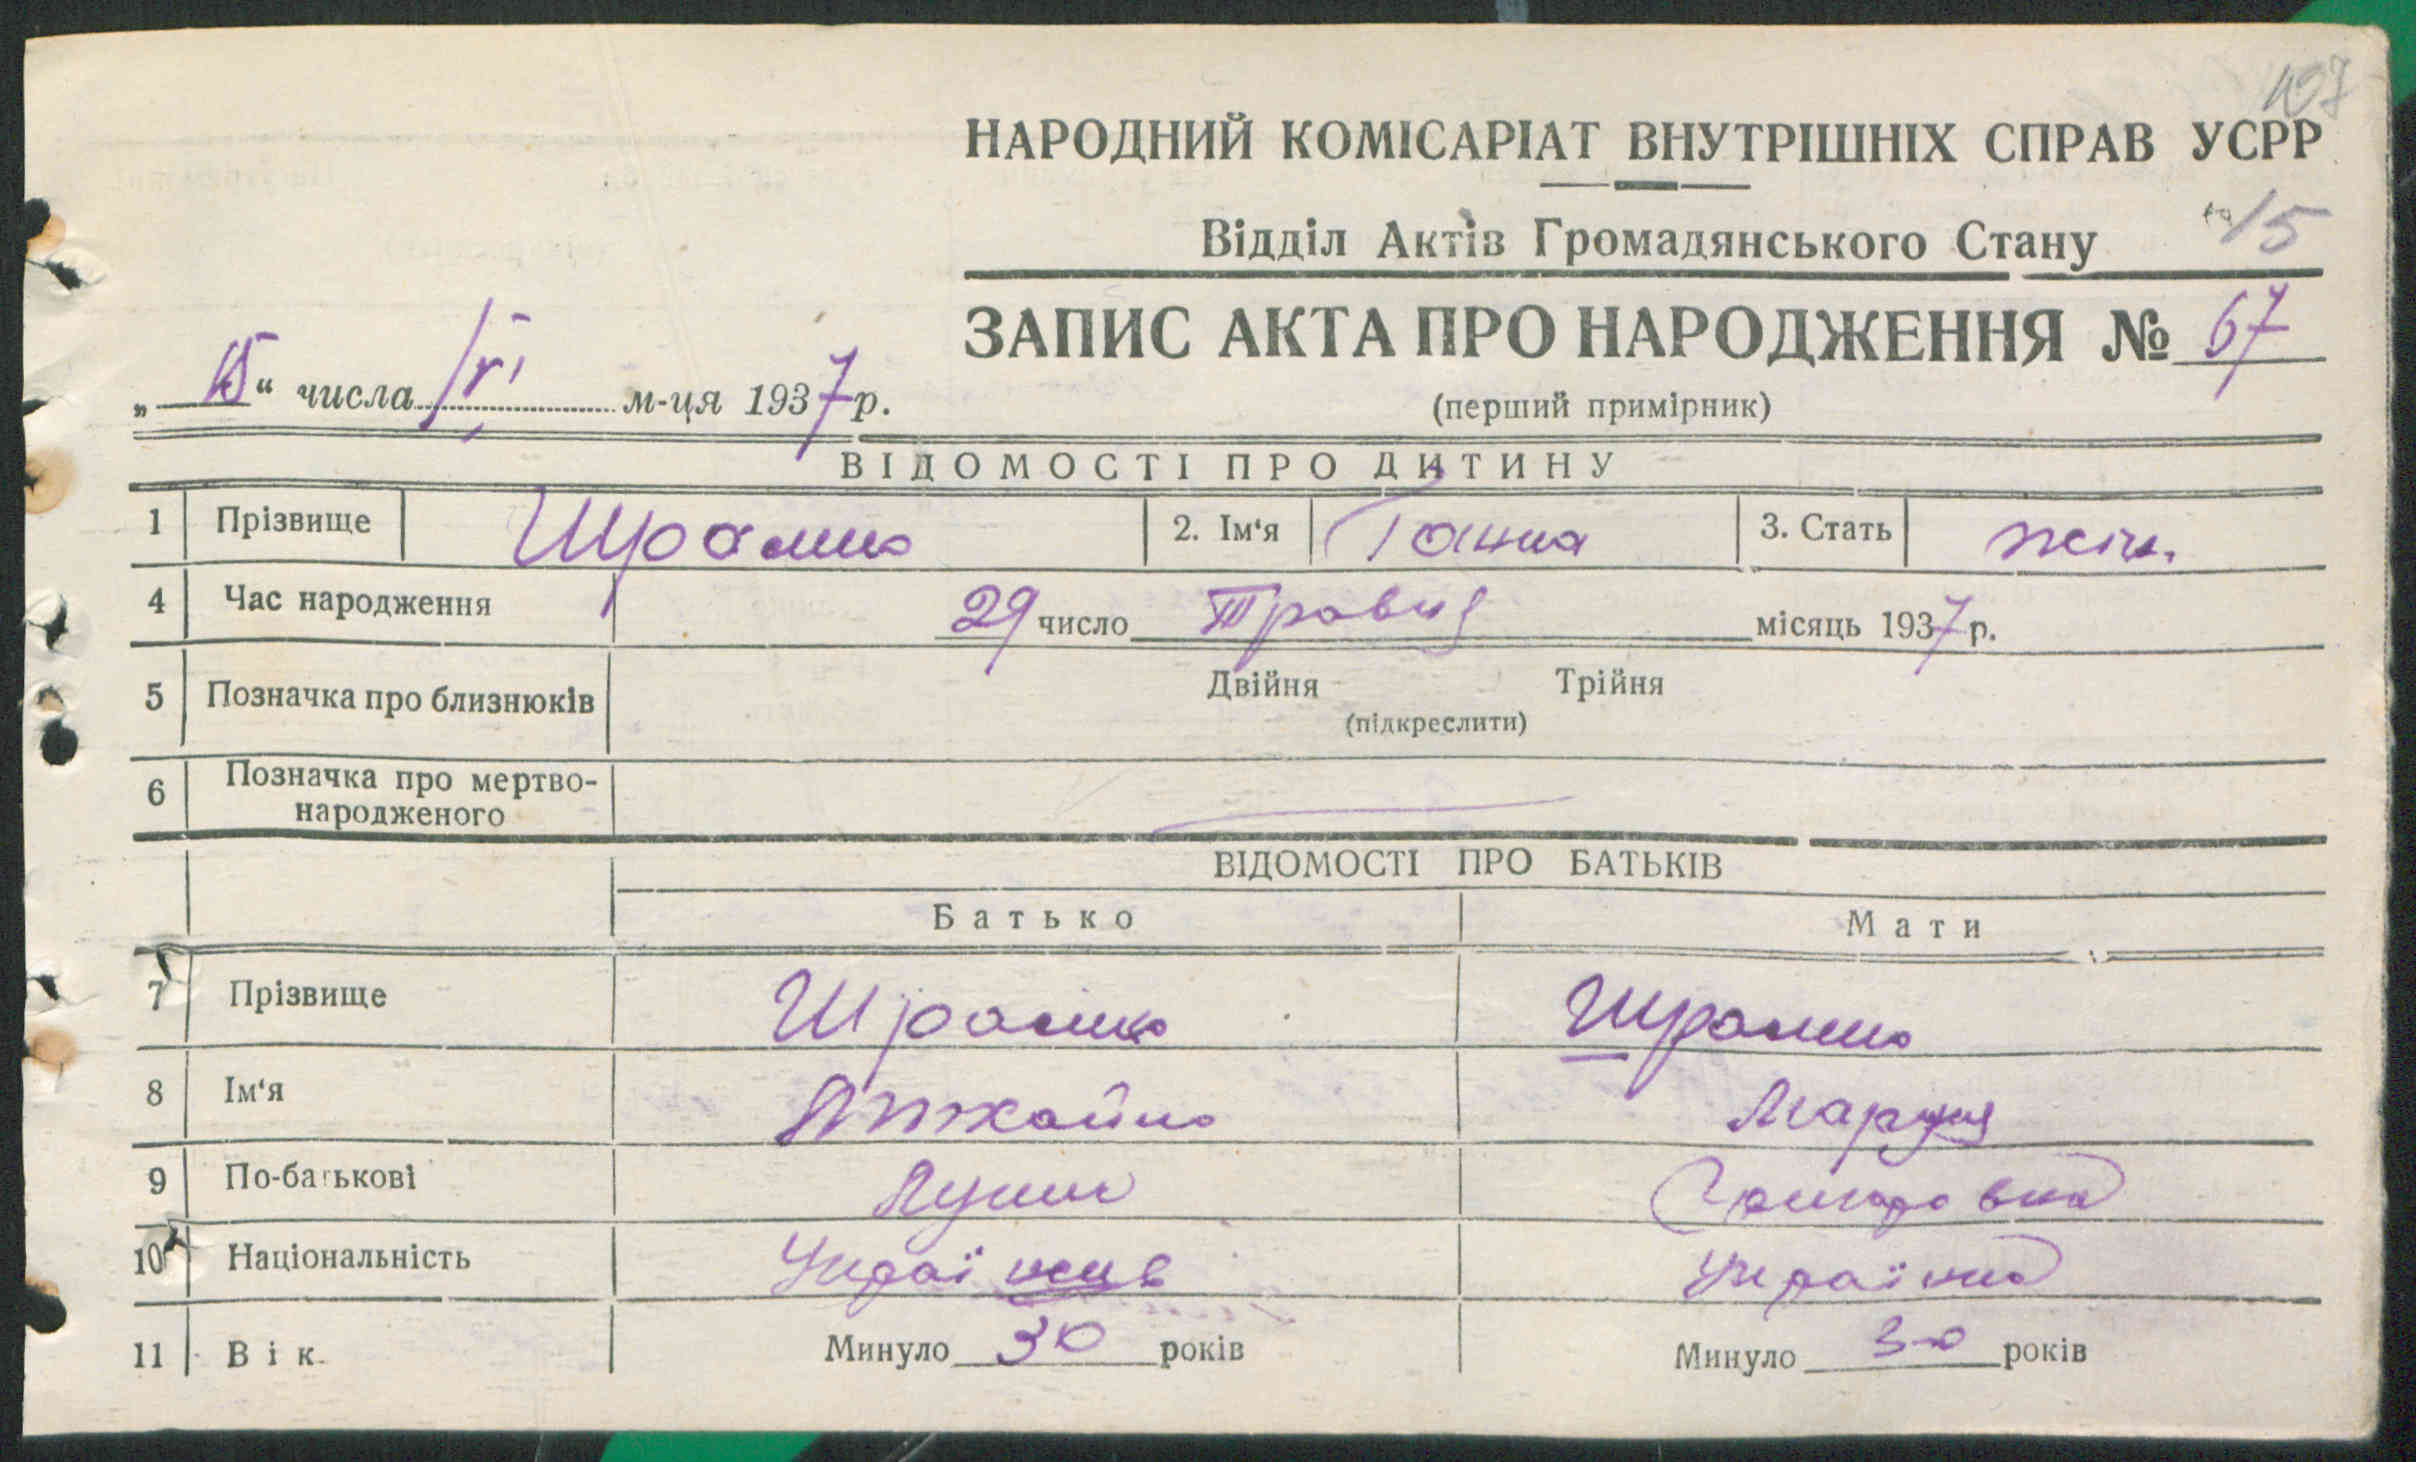 107
НАРОДНИЙ КОМІСАРІАТ ВНУТРІШНІХ СПРАВ УСРР
Відділ Актів Громадянського Стану
15
ЗАПИС АКТА ПРО НАРОДЖЕННЯ № 67
„15“ числа VI м-ця 1937 р.
(перший примірник)
ВІДОМОСТІ ПРО ДИТИНУ
1 Прізвище Шрамко 2. Ім‘я Ганна 3. Стать жіч.
4 Час народження 29 число Травня місяць 1937 р.
5 Позначка про близнюків Двійня Трійня
(підкреслити)
6 Позначка про мертво-
народженого
ВІДОМОСТІ ПРО БАТЬКІВ
Батько Мати
7 Прізвище Шрамко Шрамко
8 Ім‘я Михайло Марія
9 По-батькові
10 Національність Українец Українка
11 Вік. Минуло 30 років Минуло 30 років